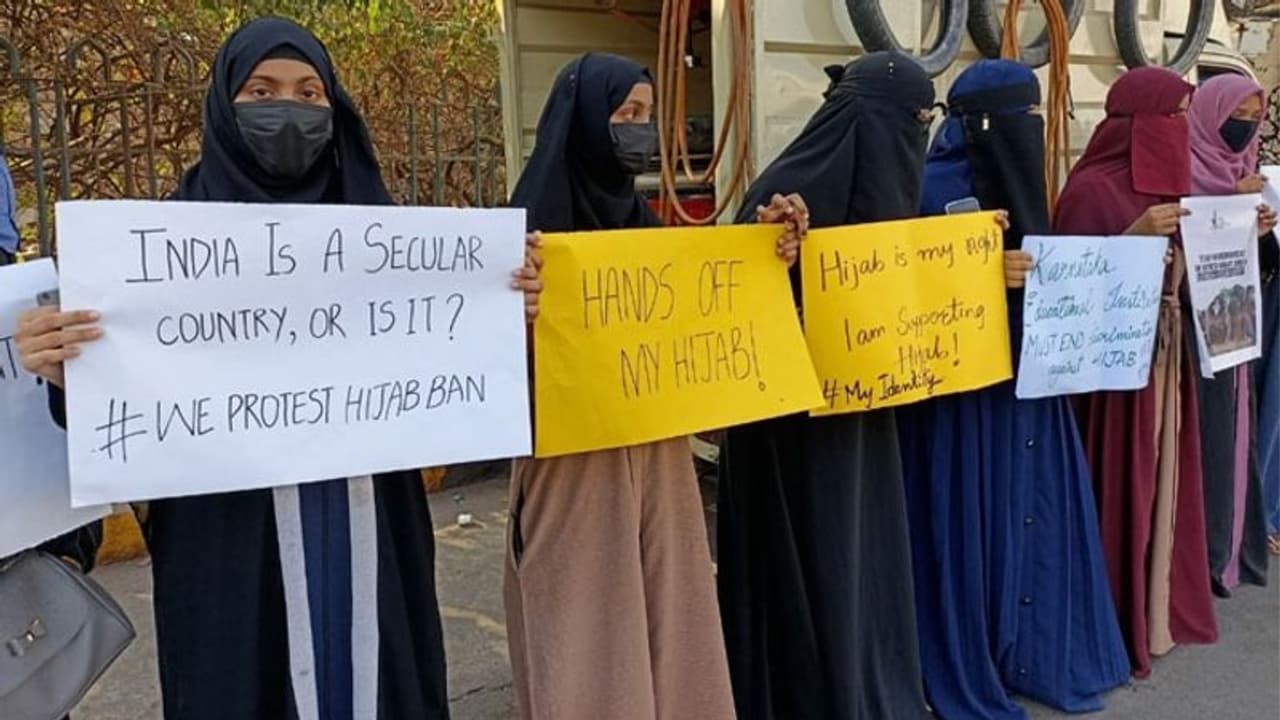 INDIA IS A SECULAR
COUNTRY, OR IS IT?
# WE PROTEST HIJAB BAN
HANDS OFF
MY HIJAB!
Hijab is my right
I am Supporting
Hijab!
# My Identity
Karnataka
Educational Institution
MUST END discrimination
against HIJAB